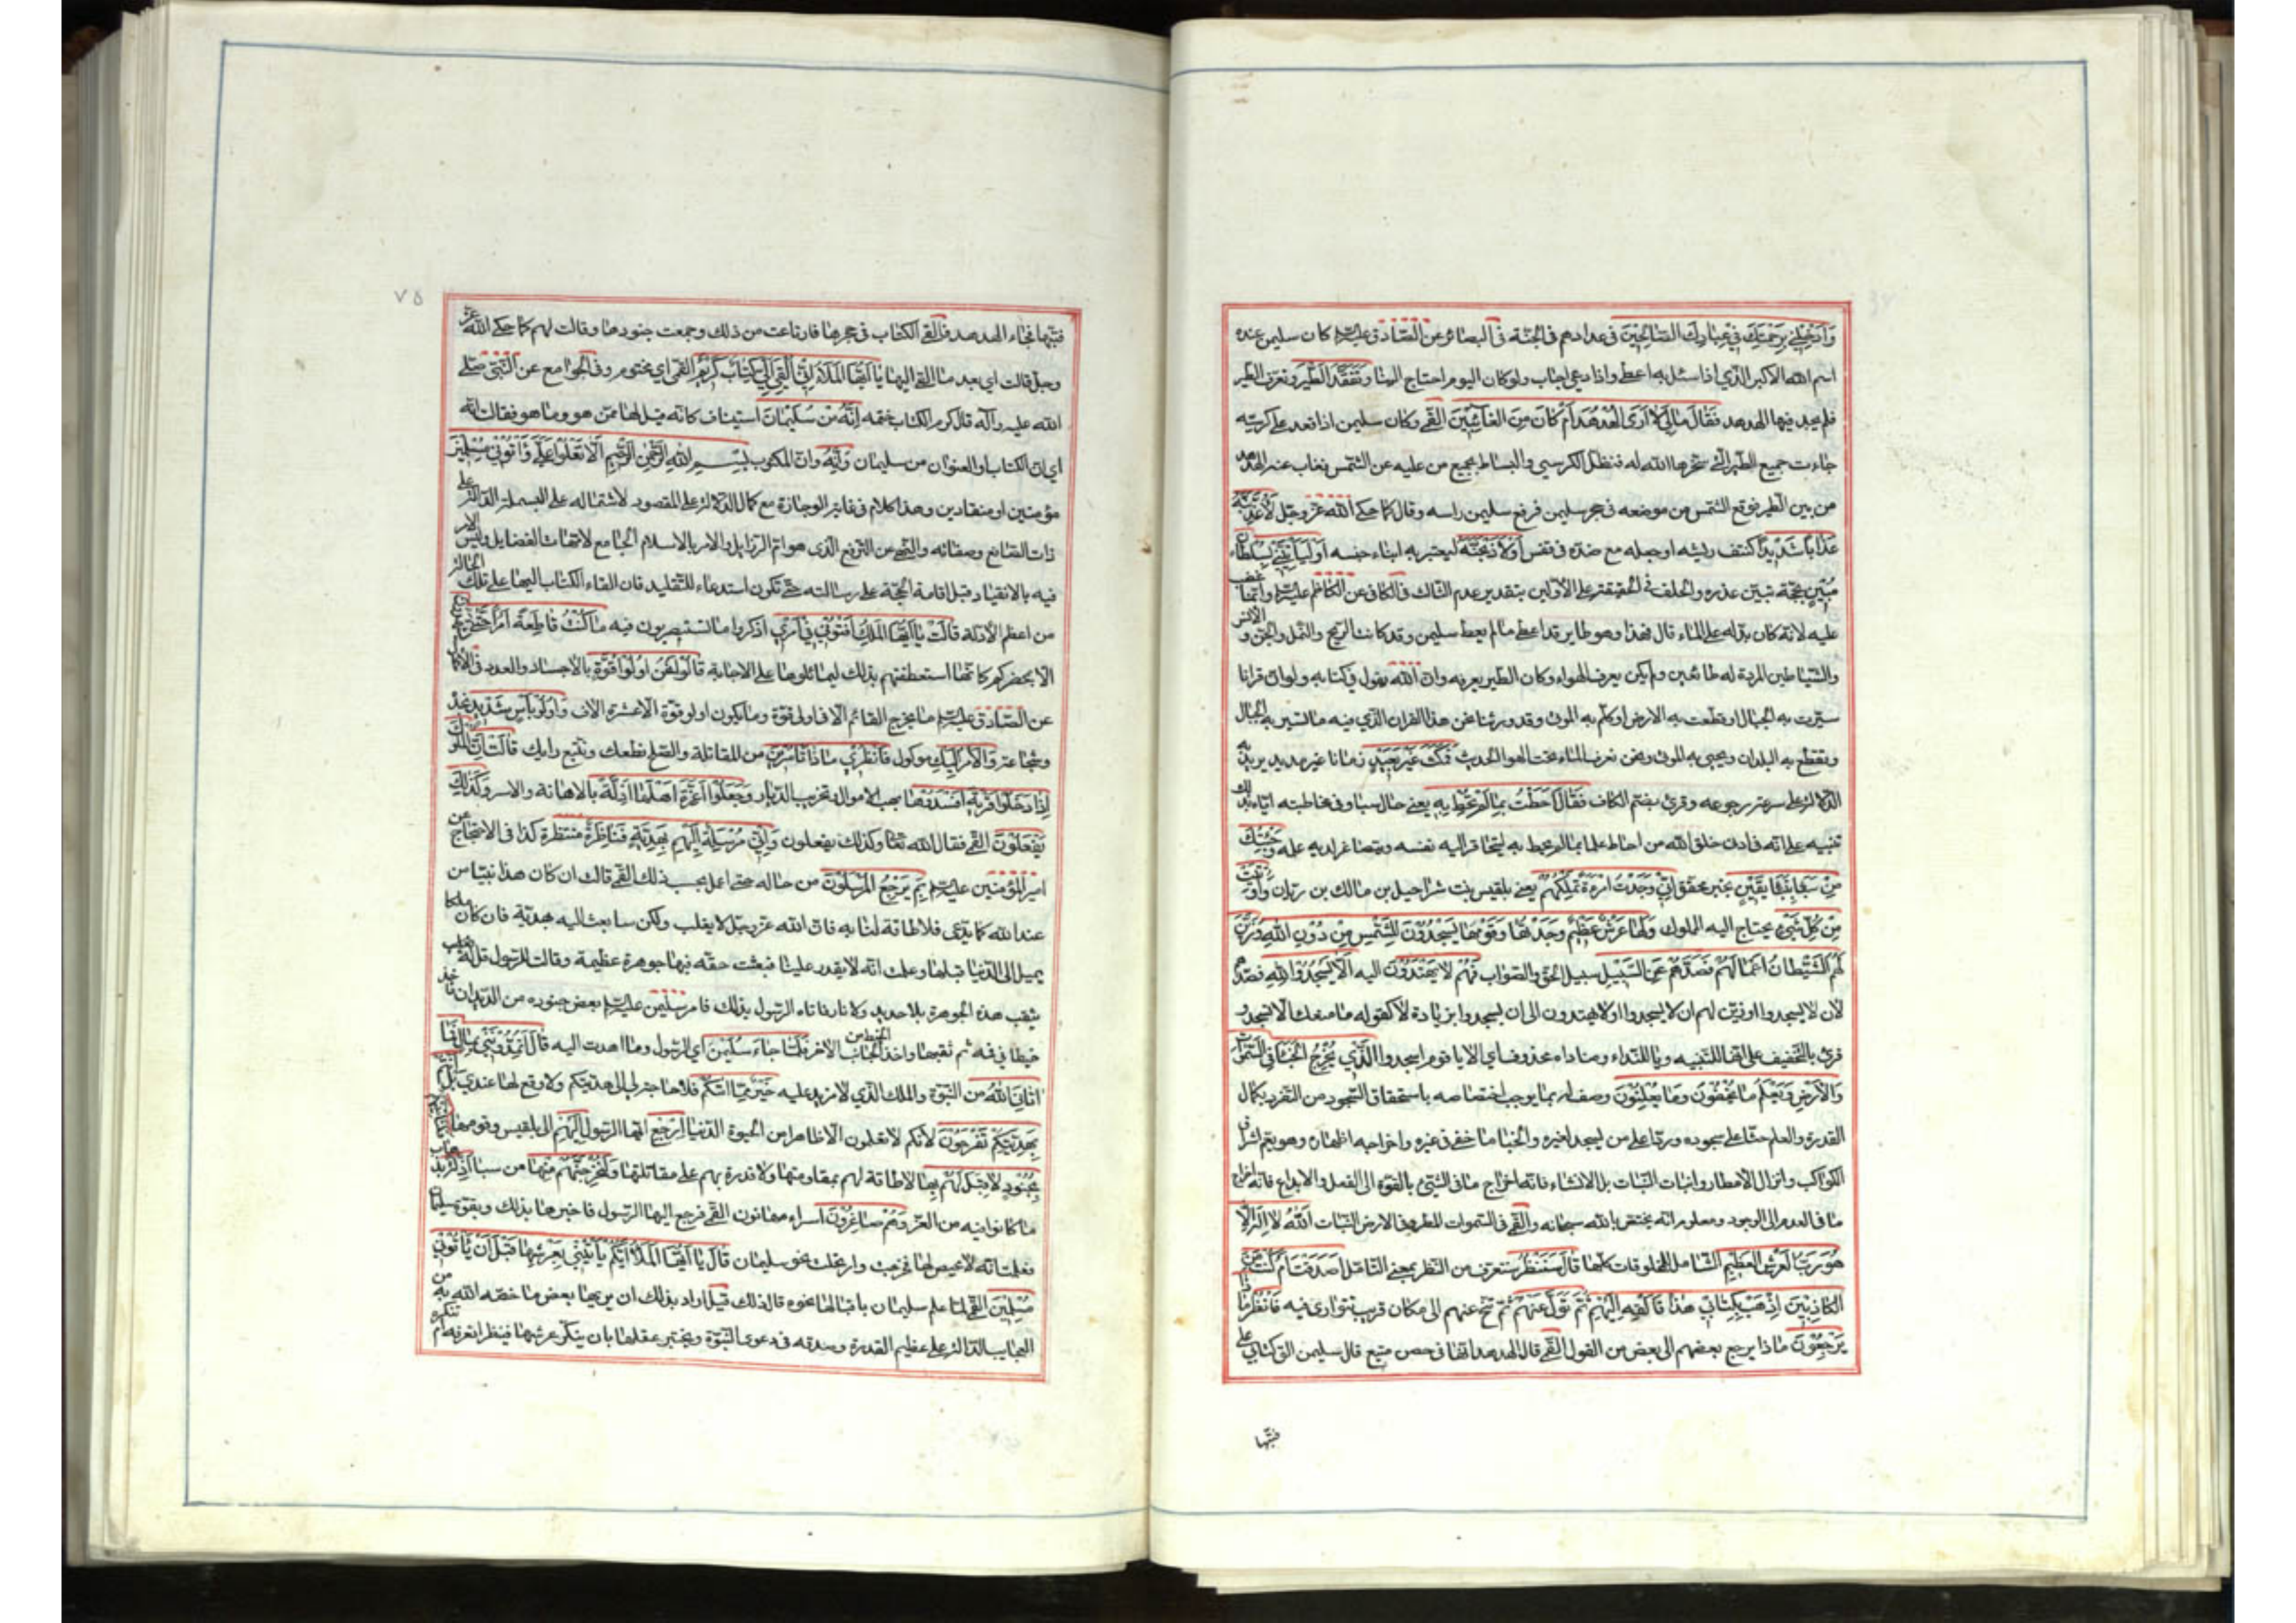 وَأَدْخِلْنِي بِرَحْمَتِكَ فِي عِبَادِكَ الصَّالِحِينَ في عدادهم في الجنّة في البصائر عن الصّادق عليه السلم كان سليمن عنده
اسم الله الأكبر الّذي اذا سئل به اعطى واذا دعي اجاب ولو كان اليوم احتاج الينا وَتَفَقَّدَ الطَّيْرَ وتعرّف الطير
فلم يجد فيها الهدهد فَقَالَ مَالِيَ لَا أَرَى الْهُدْهُدَ أَمْ كَانَ مِنَ الْغَائِبِينَ القمّي وكان سليمن اذا قعد على كرسيّه
جاءت جميع الطير الّتي سخّرها الله له فتظل الكرسي والبساط بجميع من عليه عن الشّمس فغاب عنه الهدهد
من بين الطّير فوقع الشّمس من موضعه في حجر سليمن فرفع سليمن راسه وقال كما حكى الله عزّ وجلّ لَأُعَذِّبَنَّهُ
عَذَابًا شَدِيدًا كنتف ريشه او جعله مع ضدّه في قفس أَوْ لَأَذْبَحَنَّهُ ليعتبر به ابناء جنسه أَوْ لَيَأْتِيَنِّي بِسُلْطَانٍ
مُبِينٍ بحجّة تبيّن عذره والحلف في الحقيقة على الأوّلين بتقدير عدم الثّالث في الكافي عن الكاظم عليه السلم وانّما غضب
عليه لانّه كان يدلّه على الماء قال فهذا وهو طاير قد اعطى ما لم يعط سليمن وقد كانت الريح والنّمل والجن والانس
والشّياطين المردة له طائعين ولم يكن يعرف الهواء وكان الطير يعرفه وانّ الله يقول في كتابه ولو انّ قرانا
سيّرت به الجبال او قطّعت به الارض او كلّم به الموتى وقد ورثنا نحن هذا القران الّذي فيه ما تسير به الجبال
وتقطّع به البلدان ويحيى به الموتى ونحن نعرف الماء تحت الهواء الحديث فَمَكَثَ غَيْرَ بَعِيدٍ زمانا غير مديد يريد به
الدّلالة على سرعة رجوعه وقرئ بضم الكاف فَقَالَ أَحَطْتُ بِمَا لَمْ تُحِطْ بِهِ يعني حال سبا وفي مخاطبته ايّاه بذلك
تنبيه على انّه في ادنى خلق الله من احاط علما بما لم يحط به ليتحاقر اليه نفسه ويتصاغر لديه علمه وَجِئْتُكَ
مِنْ سَبَإٍ بِنَبَإٍ يَقِينٍ بخبر محقّق إِنِّي وَجَدْتُ امْرَأَةً تَمْلِكُهُمْ يعني بلقيس بنت شراحيل بن مالك بن ريان وَأُوتِيَتْ
مِنْ كُلِّ شَيْءٍ يحتاج اليه الملوك وَلَهَا عَرْشٌ عَظِيمٌ وَجَدْتُهَا وَقَوْمَهَا يَسْجُدُونَ لِلشَّمْسِ مِنْ دُونِ اللَّهِ وَزَيَّنَ
لَهُمُ الشَّيْطَانُ أَعْمَالَهُمْ فَصَدَّهُمْ عَنِ السَّبِيلِ سبيل الحق والصّواب فَهُمْ لَا يَهْتَدُونَ اليه أَلَّا يَسْجُدُوا لِلَّهِ فصدّهم
لأن لا يسجدوا او زيّن لهم ان لا يسجدوا او لا يهتدون الى ان يسجدوا بزيادة لا كقوله ما منعك ألّا تسجد و
قرئ بالتّخفيف على انّها للتّنبيه ويا للنّداء ومناداه محذوف اي الا يا قوم اسجدوا الَّذِي يُخْرِجُ الْخَبْءَ فِي السَّمَوَاتِ
وَالْأَرْضِ وَيَعْلَمُ مَا تُخْفُونَ وَمَا تُعْلِنُونَ وصف له بما يوجب اختصاصه باستحقاق السّجود من التّفرد بكمال
القدرة والعلم حثّا على سجوده وردّا على من يسجد لغيره والخبأ ما خفي في غيره واخراجه اظهاره وهو يعمّ اشراق
الكواكب وانزال الأمطار وانبات النّبات بل الانشاء فانّه اخراج ما في الشيء بالقوّة الى الفعل والابداع فانّه اخراج
ما في العدم الى الوجود ومعلوم انّه يختص بالله سبحانه والقمّي في السّموات المطر وفي الارض النّبات اللَّهُ لَا إِلَهَ إِلَّا
هُوَ رَبُّ الْعَرْشِ الْعَظِيمِ الشّامل للمخلوقات كلّها قَالَ سَنَنْظُرُ سنتعرف من النّظر بمعنى التامّل أَصَدَقْتَ أَمْ كُنْتَ مِنَ
الْكَاذِبِينَ اذْهَبْ بِكِتَابِي هَذَا فَأَلْقِهِ إِلَيْهِمْ ثُمَّ تَوَلَّ عَنْهُمْ ثمّ تنحّ عنهم الى مكان قريب تتوارى فيه فَانْظُرْ مَاذَا
يَرْجِعُونَ ماذا يرجع بعضهم الى بعض من القول القمّي قال الهدهد انّها في حصن منيع قال سليمن الق كتابي على
قبّتها
٧٥
قبّتها فجاء الهدهد فالقى الكتاب في حجرها فارتاعت من ذلك وجمعت جنودها وقالت لهم كما حكى الله عزّ
وجلّ قالت اي بعد ما القى اليها يَا أَيُّهَا الْمَلَأُ إِنِّي أُلْقِيَ إِلَيَّ كِتَابٌ كَرِيمٌ القمّي اي مختوم وفي الجوامع عن النّبيّ صلّى
الله عليه وآله قال كرم الكتاب ختمه إِنَّهُ مِنْ سُلَيْمَانَ استيناف كانّه قيل لها ممّن هو وما هو فقالت انّه
اي انّ الكتاب او العنوان من سليمان وَإِنَّهُ وانّ المكتوب بِسْمِ اللَّهِ الرَّحْمَنِ الرَّحِيمِ أَلَّا تَعْلُوا عَلَيَّ وَأْتُونِي مُسْلِمِينَ
مؤمنين او منقادين وهذا كلام في غاية الوجازة مع كمال الدّلالة على المقصود لاشتماله على البسملة الدّالّة على
ذات الصّانع وصفاته والنّهي عن التّرفّع الّذي هو امّ الرّزايل والامر بالاسلام الجامع لامّهات الفضايل وليس الامر
فيه بالانقياد قبل اقامة الحجّة على رسالته حتّى تكون استدعاء للتّقليد فان القاء الكتاب اليها على تلك الحالة
من اعظم الأدلّة قَالَتْ يَا أَيُّهَا الْمَلَأُ أَفْتُونِي فِي أَمْرِي اذكروا ما تستصوبون فيه مَا كُنْتُ قَاطِعَةً أَمْرًا حَتَّى تَشْهَدُونِ
الّا بمحضركم كانّها استعطفتهم بذلك ليمائلوها على الاجابة قَالُوا نَحْنُ أُولُو قُوَّةٍ بالأجساد والعدد في الأكمال
عن الصّادق عليه السلم ما يخرج القائم الّا في اولي قوّة وما يكون اولو قوّة الّا عشرة الاف وَأُولُو بَأْسٍ شَدِيدٍ نجدة
وشجاعة وَالْأَمْرُ إِلَيْكِ موكول فَانْظُرِي مَاذَا تَأْمُرِينَ من المقاتلة والصّلح نطعك ونتّبع رايك قَالَتْ إِنَّ الْمُلُوكَ
إِذَا دَخَلُوا قَرْيَةً أَفْسَدُوهَا بنهب الاموال وتخريب الدّيار وَجَعَلُوا أَعِزَّةَ أَهْلِهَا أَذِلَّةً بالاهانة والاسر وَكَذَلِكَ
يَفْعَلُونَ القمّي فقال الله تعا وكذلك يفعلون وَإِنِّي مُرْسِلَةٌ إِلَيْهِمْ بِهَدِيَّةٍ فَنَاظِرَةٌ منتظرة كذا في الاحتجاج عن
امير المؤمنين عليه السلم بِمَ يَرْجِعُ الْمُرْسَلُونَ من حاله حتى اعمل بحسب ذلك القمّي قالت ان كان هذا نبيّا من
عند الله كما يدّعي فلا طاقة لنا به فان الله عزّ وجلّ لا يغلب ولكن سابعث اليه بهديّة فان كان ملكا
يميل الى الدّنيا قبلها وعلمت انّه لا يقدر علينا فبعثت حقّه فيها جوهرة عظيمة وقالت للرّسول قل له
يثقب هذه الجوهرة بلا حديد ولا نار فاتاه الرّسول بذلك فامر سليمن عليه السلم بعض جنوده من الدّيدان فاخذ
خيطا في فيه ثم ثقبها واخذ الخيط من الجانب الاخر فَلَمَّا جَاءَ سُلَيْمَنَ اي الرّسول وما اهدت اليه قَالَ أَتُمِدُّونَنِي بِمَالٍ فَمَا
آتَانِيَ اللَّهُ من النّبوّة والملك الّذي لا مزيد عليه خَيْرٌ مِمَّا آتَاكُمْ فلا حاجة لي الى هديّتكم ولا وقع لها عندي بَلْ أَنْتُمْ
بِهَدِيَّتِكُمْ تَفْرَحُونَ لأنّكم لا تعلمون الّا ظاهرا من الحيوة الدّنيا ارْجِعْ ايّها الرّسول إِلَيْهِمْ الى بلقيس وقومها فَلَنَأْتِيَنَّهُمْ
بِجُنُودٍ لَا قِبَلَ لَهُمْ بِهَا لا طاقة لهم بمقاومتها ولا قدرة بهم على مقاتلتها وَلَنُخْرِجَنَّهُمْ مِنْهَا من سبا أَذِلَّةً بذهاب
ما كانوا فيه من العزّ وَهُمْ صَاغِرُونَ اسراء مهانون القمّي فرجع اليها الرّسول فاخبرها بذلك وبقوّة سليمان
فعلمت انّه لا محيص لها فخرجت وارتحلت نحو سليمان قَالَ يَا أَيُّهَا الْمَلَأُ أَيُّكُمْ يَأْتِينِي بِعَرْشِهَا قَبْلَ أَنْ يَأْتُونِي
مُسْلِمِينَ القمّي لمّا علم سليمان باقبالها نحوه قال ذلك قيل اراد بذلك ان يريها بعض ما خصّه الله به من
العجايب الدّالة على عظيم القدرة وصدقه في دعوى النّبوّة ويختبر عقلها بان ينكّر عرشها فينظر اتعرفه ام تنكره